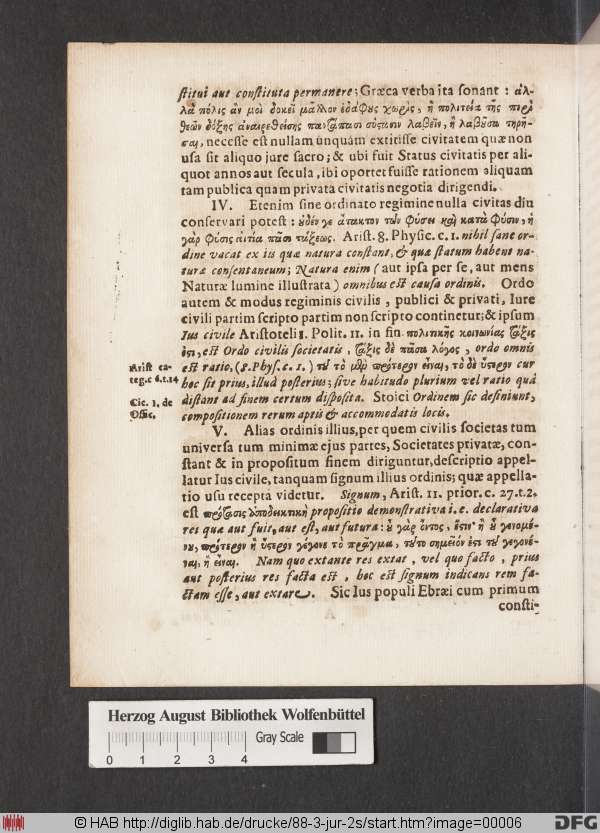 stitui aut constituta permanere; Græca verba ita sonant: ἀλ-
λὰ πόλις ἄν μοι δοκεῖ μᾶλλον ἐδάφους χωρὶς, ἢ πολιτεία τῆς περὶ
θεῶν δόξης ἀναιρεθείσης παντάπασι σύστασιν λαβεῖν, ἢ λαβοῦσα τηρῆ-
σαι, necesse est nullam unquam extitisse civitatem quæ non
usa sit aliquo jure sacro; & ubi fuit Status civitatis per ali-
quot annos aut secula, ibi oportet fuisse rationem aliquam
tam publica quam privata civitatis negotia dirigendi.
IV. Etenim sine ordinato regimine nulla civitas diu
conservari potest: οὐδέν γε ἄτακτον τῶν φύσει καὶ κατὰ φύσιν, ἡ
γὰρ φύσις αἰτία πᾶσι τάξεως. Arist. 8. Physic. c. 1. nihil sane or-
dine vacat ex iis quæ natura constant, & quæ statum habent na-
turæ consentaneum; Natura enim (aut ipsa per se, aut mens
Naturæ lumine illustrata) omnibus est causa ordinis. Ordo
autem & modus regiminis civilis, publici & privati, Iure
civili partim scripto partim non scripto continetur; & ipsum
Ius civile Aristoteli 1. Polit. 11. in fin. πολιτικῆς κοινωνίας τάξις
ἐστι, est Ordo civilis societatis, τάξις δὲ πᾶσα λόγος, ordo omnis
est ratio, (8. Phys. c. 1.) τοῦ τὸ μὲν πρότερον εἶναι, τὸ δὲ ὕστερον cur
hoc sit prius, illud posterius; sive habitudo plurium vel ratio quâ
distant ad finem certum disposita. Stoici Ordinem sic definiunt,
compositionem rerum aptis & accommodatis locis.
Arist ca-
teg. c 6. t. 14
Cic. 1. de
Offic.
V. Alias ordinis illius, per quem civilis societas tum
universa tum minimæ ejus partes, Societates privatæ, con-
stant & in propositum finem diriguntur, descriptio appel-
latur Ius civile, tanquam signum illius ordinis; quæ appella-
tio usu recepta videtur. Signum, Arist. 11. prior. c. 27. t. 2.
est πρότασις ἀποδεικτικὴ propositio demonstrativa i. e. declarativa
res quæ aut fuit, aut est, aut futura: οὗ γὰρ ὄντος, ἔστιν ἢ οὗ γενομέ-
νου, πρότερον ἢ ὕστερον γέγονε τὸ πρᾶγμα, τοῦτο σημεῖόν ἐστι τοῦ γεγονέ-
ναι, ἢ εἶναι. Nam quo extante res extat, vel quo facto, prius
aut posterius res facta est, hoc est signum indicans rem fa-
ctam esse, aut extare. Sic Ius populi Ebræi cum primum
consti-
Herzog August Bibliothek Wolfenbüttel
Gray Scale
0 1 2 3 4
© HAB http://diglib.hab.de/drucke/88-3-jur-2s/start.htm?image=00006
DFG